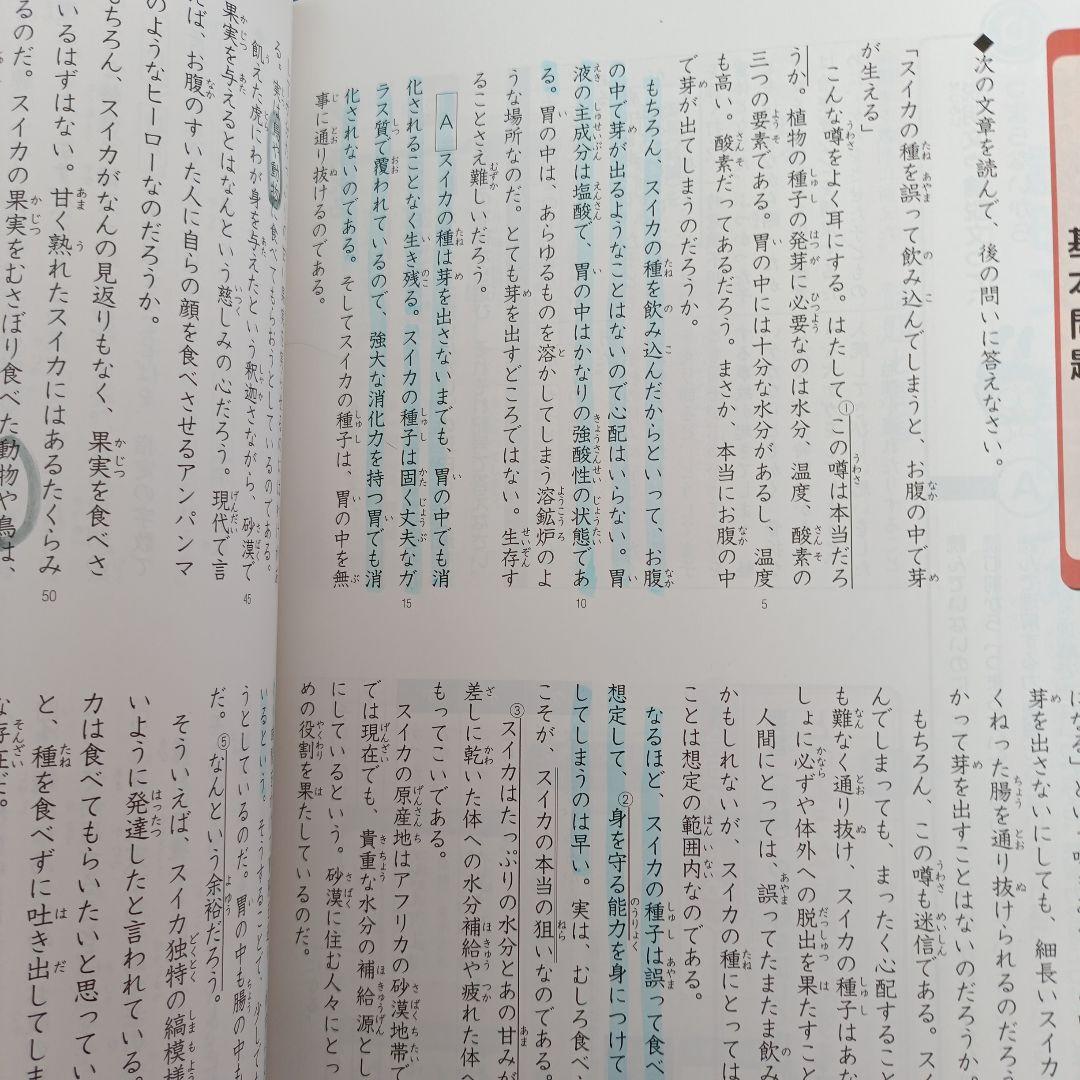 基本問題
◆次の文章を読んで、後の問いに答えなさい。
「スイカの種を誤って飲み込んでしまうと、お腹の中で芽
が生える」
こんな噂をよく耳にする。はたして①この噂は本当だろ
うか。植物の種子の発芽に必要なのは水分、温度、酸素の
三つの要素である。胃の中には十分な水分があるし、温度
も高い。酸素だってあるだろう。まさか、本当にお腹の中
で芽が出てしまうのだろうか。
もちろん、スイカの種を飲み込んだからといって、お腹
の中で芽が出るようなことはないので心配はいらない。胃
液の主成分は塩酸で、胃の中はかなりの強酸性の状態であ
る。胃の中は、あらゆるものを溶かしてしまう溶鉱炉のよ
うな場所なのだ。とても芽を出すどころではない。生存す
ることさえ難しいだろう。
A スイカの種は芽を出さないまでも、胃の中でも消
化されることなく生き残る。スイカの種子は固く丈夫なガ
ラス質で覆われているので、強大な消化力を持つ胃でも消
化されないのである。そしてスイカの種子は、胃の中を無
事に通り抜けるのである。
5
10
15
芽を出さないにしても、細長いスイカ
くねった腸を通り抜けられるのだろう
かって芽を出すことはないのだろうか。
もちろん、この噂も迷信である。ス
んでしまっても、まったく心配すること
も難なく通り抜け、スイカの種子はあな
しょに必ずや体外への脱出を果たすこと
人間にとっては、誤ってたまたま飲み
かもしれないが、スイカの種にとっては
ことは想定の範囲内なのである。
なるほど、スイカの種子は誤って食べ
想定して、②身を守る能力を身につけて
してしまうのは早い。実は、むしろ食べ
こそが、スイカの本当の狙いなのである。
③スイカはたっぷりの水分とあの甘みが
差しに乾いた体への水分補給や疲れた体へ
もってこいである。
スイカの原産地はアフリカの砂漠地帯で
では現在でも、貴重な水分の補給源とし
にしているという。砂漠に住む人々にとっ
めの役割を果たしているのだ。
飢えた虎にわが身を与えたという釈迦さながら、砂漠で
果実を与えるとはなんという慈しみの心だろう。現代で言
えば、お腹のすいた人に自らの顔を食べさせるアンパンマ
のようなヒーローなのだろうか。
もちろん、スイカがなんの見返りもなく、果実を食べさ
いるはずはない。甘く熟れたスイカにはあるたくらみ
るのだ。スイカの果実をむさぼり食べた動物や鳥は、
45
50
うとしているのだ。胃の中も腸の中も
だ。⑤なんという余裕だろう。
そういえば、スイカ独特の縞模様
いように発達したと言われている。
カは食べてもらいたいと思ってい
と、種を食べずに吐き出してしま
な存在だ。